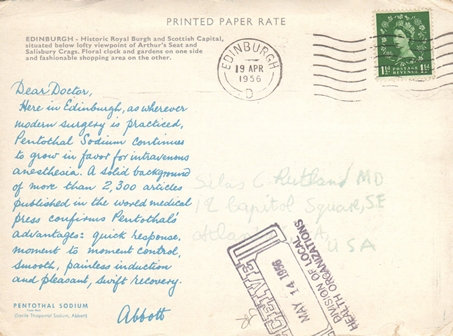 PRINTED PAPER RATE
EDINBURGH - Historic Royal Burgh and Scottish Capital,
situated below lofty viewpoint of Arthur's Seat and
Salisbury Crags. Floral clock and gardens on one side
and fashionable shopping area on the other.
EDINBURGH
19 APR
1956
D
1½d POSTAGE REVENUE 1½d
Dear Doctor,
Here in Edinburgh, as wherever
modern surgery is practiced,
Pentothal Sodium continues
to grow in favor for intravenous
anesthesia. A solid background
of more than 2,300 articles
published in the world medical
press confirms Pentothal's
advantages: quick response,
moment to moment control,
smooth, painless induction
and pleasant, swift recovery.
Abbott
PENTOTHAL SODIUM
(Sterile Thiopental Sodium, Abbott)
Silas C Rutland MD
12 Capitol Square, SE
USA
MAY 14 1956
DIVISION OF LOCAL
HEALTH ORGANIZATIONS